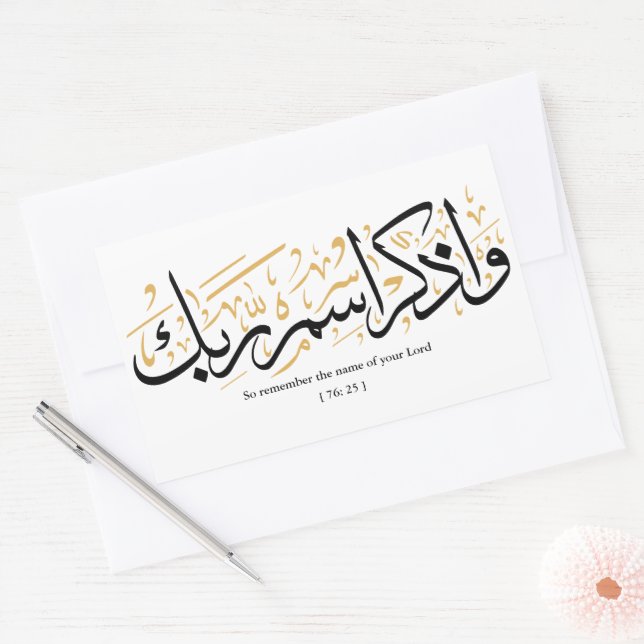 واذكر اسم ربك
So remember the name of your Lord
[ 76: 25 ]